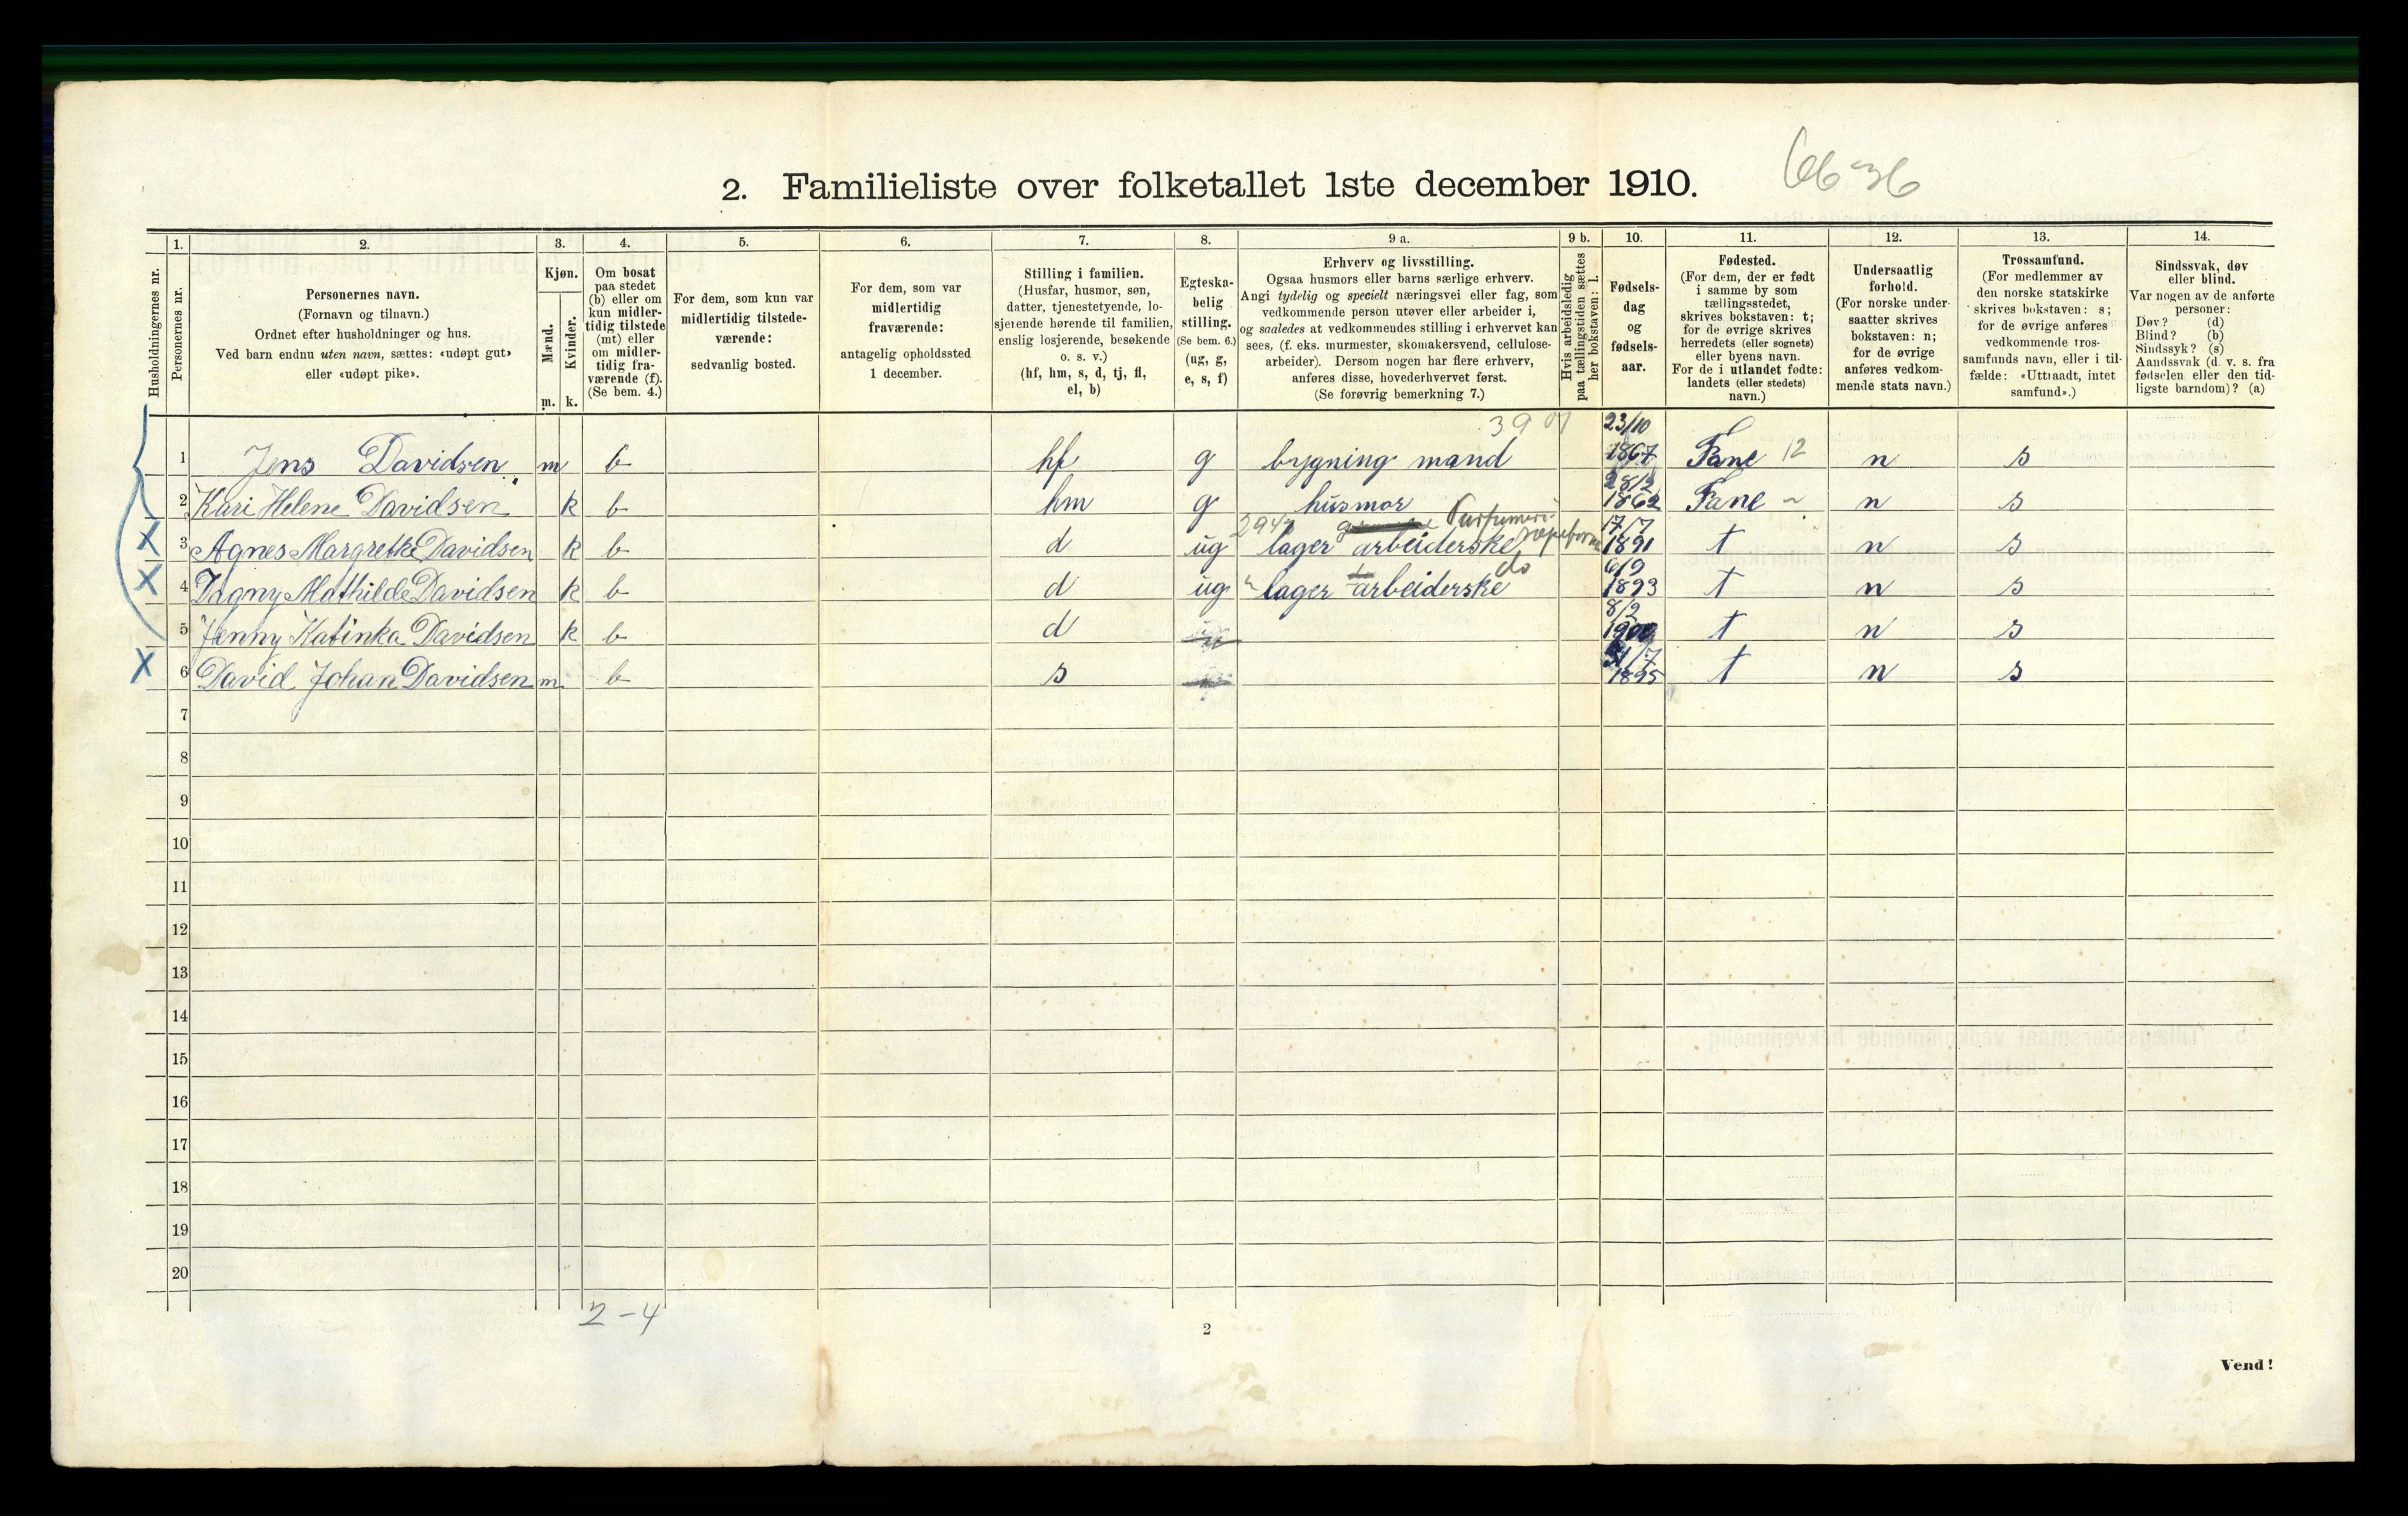 2. Familieliste over folketallet 1ste december 1910.
66-36
Husholdningernes nr.
1.
Personernes nr.
2.
Personernes navn.
(Fornavn og tilnavn.)
Ordnet efter husholdninger og hus.
Ved barn endnu uten navn, sættes: «udøpt gut»
eller «udøpt pike».
3.
Kjøn.
Mænd.
Kvinder.
m.
k.
4.
Om bosat
paa stedet
(b) eller om
kun midler-
tidig tilstede
(mt) eller
om midler-
tidig fra-
værende (f).
(Se bem. 4.)
5.
For dem, som kun var
midlertidig tilstede-
værende:
sedvanlig bosted.
6.
For dem, som var
midlertidig
fraværende:
antagelig opholdssted
1 december.
7.
Stilling i familien.
(Husfar, husmor, søn,
datter, tjenestetyende, lo-
sjerende hørende til familien,
enslig losjerende, besøkende
o. s. v.)
(hf, hm, s, d, tj, fl,
el, b)
8.
Egteska-
belig
stilling.
(Se bem. 6.)
(ug, g,
e, s, f)
9 a.
Erhverv og livsstilling.
Ogsaa husmors eller barns særlige erhverv.
Angi tydelig og specielt næringsvei eller fag, som
vedkommende person utøver eller arbeider i,
og saaledes at vedkommendes stilling i erhvervet kan
sees, (f. eks. murmester, skomakersvend, cellulose-
arbeider). Dersom nogen har flere erhverv,
anføres disse, hovederhvervet først.
(Se forøvrig bemerkning 7.)
9 b.
Hvis arbeidsledig
paa tællingstiden sættes
her bokstaven: l.
10.
Fødsels-
dag
og
fødsels-
aar.
11.
Fødested.
(For dem, der er født
i samme by som
tællingsstedet,
skrives bokstaven: t;
for de øvrige skrives
herredets (eller sognets)
eller byens navn.
For de i utlandet fødte:
landets (eller stedets)
navn.)
12.
Undersaatlig
forhold.
(For norske under-
saatter skrives
bokstaven: n;
for de øvrige
anføres vedkom-
mende stats navn.)
13.
Trossamfund.
(For medlemmer av
den norske statskirke
skrives bokstaven: s;
for de øvrige anføres
vedkommende tros-
samfunds navn, eller i til-
fælde: «Uttraadt, intet
samfund».)
14.
Sindssvak, døv
eller blind.
Var nogen av de anførte
personer:
Døv? (d)
Blind? (b)
Sindssyk? (s)
Aandssvak (d. v. s. fra
fødselen eller den tid-
ligste barndom)? (a)
1 Jens Davidsen m b hf g bygning mand 23/10 1867 Fane 12 n s
2 Kari Helene Davidsen k b hm g husmor 1862 Fane n s
X 3 Agnes Margrethe Davidsen k b d ug lager arbeiderske 17/7 1891 t n s
X 4 Dagny Mathilde Davidsen k b d ug lager arbeiderske do 6/9 1893 t n s
5 Jenny Katinka Davidsen k b d 8/2 1900 t n s
X 6 David Johan Davidsen m b s 31/7 1895 t n s
7
8
9
10
11
12
13
14
15
16
17
18
19
20
2-4
2
Vend!